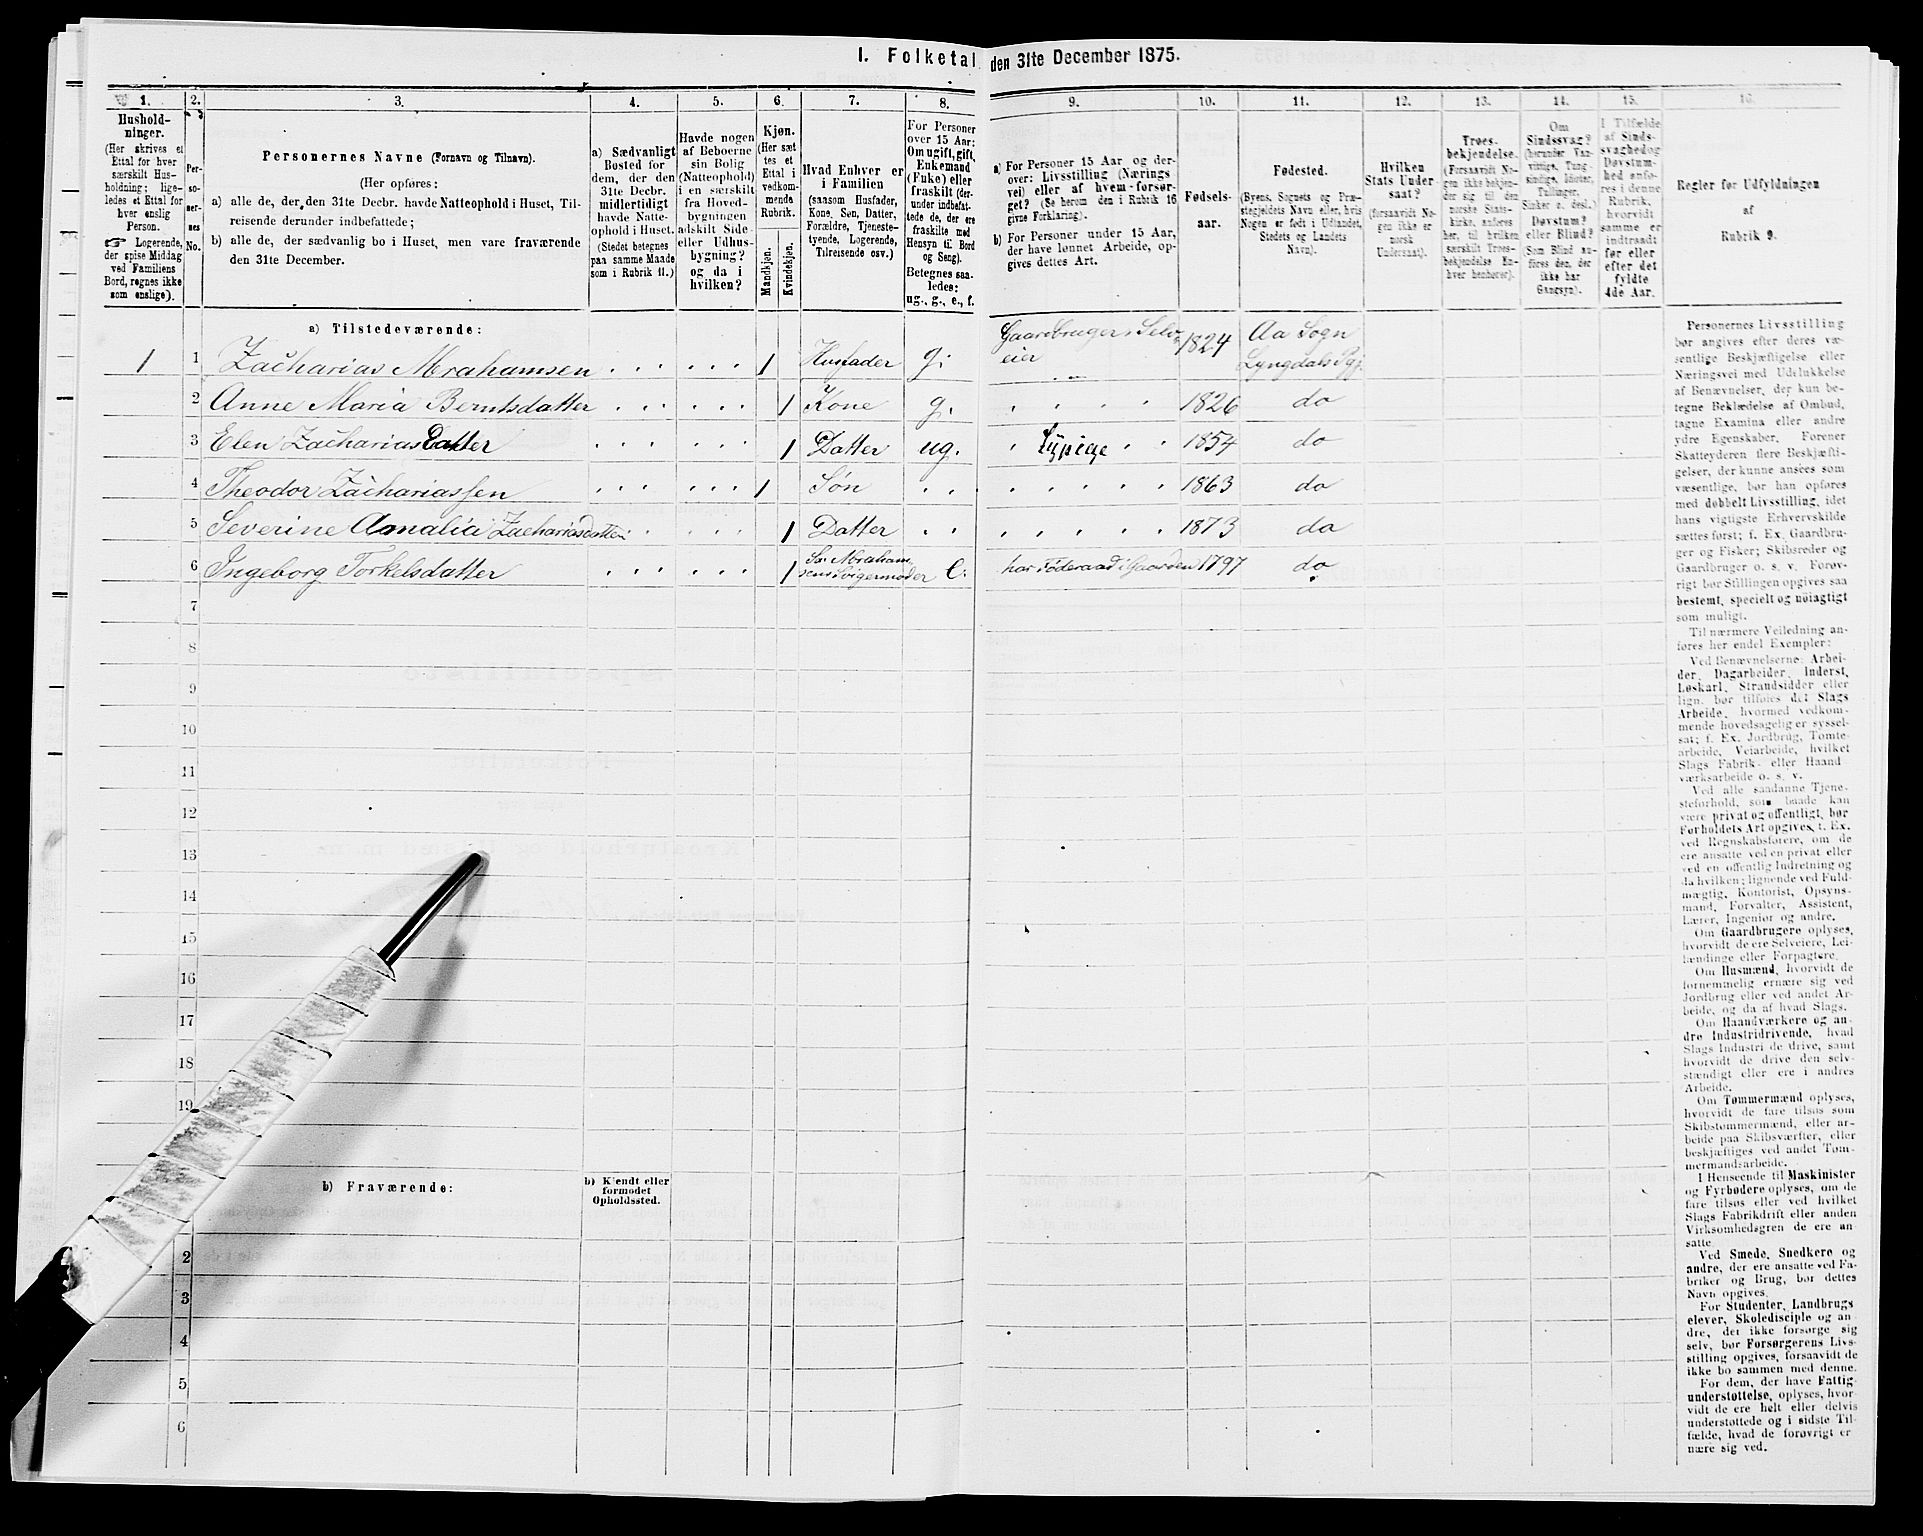 I. Folketal den 31te December 1875.
1.
Hushold-
ninger.
(Her skrives et
Ettal for hver
særskilt Hus-
holdning; lige-
ledes et Ettal for
hver enslig
Person.
☞ Logerende,
der spise Middag
ved Familiens
Bord, regnes ikke
som enslige).
2.
Per-
so-
ner-
nes
No.
3.
Personernes Navne (Fornavn og Tilnavn).
(Her opføres:
a) alle de, der den 31te Decbr. havde Natteophold i Huset, Til-
reisende derunder indbefattede;
b) alle de, der sædvanlig bo i Huset, men vare fraværende
den 31te December.
4.
a) Sædvanligt
Bosted for
dem, der den
31te Decbr.
midlertidigt
havde Natte-
ophold i Huset.
(Stedet betegnes
paa samme Maade
som i Rubrik 11.)
5.
Havde nogen
af Beboerne
sin Bolig
(Natteophold)
i en særskilt
fra Hoved-
bygningen
adskilt Side-
eller Udhus-
bygning?
og da i
hvilken?
6.
Kjøn.
(Her sæt-
tes et
Ettal i
vedkom-
mende
Rubrik.
Mandkjøn.
Kvindekjøn.
7.
Hvad Enhver er
i Familien
(saasom Husfader,
Kone, Søn, Datter,
Forældre, Tjeneste-
tyende, Logerende,
Tilreisende osv.)
8.
For Personer
over 15 Aar:
Om ugift, gift,
Enkemand
(Enke) eller
fraskilt (der-
under indbefat-
tede de, der ere
fraskilte med
Hensyn til Bord
og Seng).
Betegnes saa-
ledes:
ug., g., e., f.
9.
a) For Personer 15 Aar og der-
over: Livsstilling (Nærings-
vei) eller af hvem forsør-
get? (Se herom den i Rubrik 16
givne Forklaring).
b) For Personer under 15 Aar,
der have lønnet Arbeide, op-
gives dettes Art.
10.
Fødsels-
aar.
11.
Fødested.
(Byens, Sognets og Præ-
stegjeldets Navn eller, hvis
Nogen er født i Udlandet,
Stedets og Landets
Navn).
12.
Hvilken
Stats Under-
saat?
(forsaavidt No-
gen ikke er
norsk
Undersaat).
13.
Troes-
bekjendelse.
(Forsaavidt No-
gen ikke bekjen-
der sig til den
norske Stats-
kirke, anføres
her, til hvilken
særskilt Troes-
bekjendelse En-
hver henhører).
14.
Om
Sindssvag?
(herunder Van-
vittige, Tung-
sindige, Idioter,
Tullinger,
Sinker o. desl.)
Døvstum?
eller Blind?
(Som Blind an-
føres den, der
ikke har
Gangsyn).
15.
I Tilfælde
af Sinds-
svaghed og
Døvstum-
hed anfø-
res i denne
Rubrik,
hvorvidt
samme er
indtraadt
før eller
efter det
fyldte
4de Aar.
16.
Regler for Udfyldningen
af
Rubrik 9.
a) Tilstedeværende:
1 1 Zacharias Abrahamsen 1 Husfader g: Gaardbruger, Selv-eier 1824 Aa Sogn Lyngdals Pgj.
2 Anne Maria Berntsdatter 1 Kone g. 1826 do
3 Elen ZachariasDatter 1 Datter ug. Sypige 1854 do
4 Theodor Zachariassen 1 Søn 1863 do
5 Severine Amalia Zachariasdatter 1 Datter 1873 do
6 Ingeborg Torkelsdatter 1 Abraham-sens Svigermoder e: har Føderaad i Gaarden 1797 do
7
8
9
10
11
12
13
14
15
16
17
18
19
b) Fraværende:
b) Kjendt eller
formodet
Opholdssted.
2
3
4
5
6
Personernes Livsstilling
bør angives efter deres væ-
sentlige Beskjæftigelse eller
Næringsvei med Udelukkelse
af Benævnelser, der kun be-
tegne Beklædelse af Ombud,
tagne Examina eller andre
ydre Egenskaber. Forener
Skatteyderen flere Beskjæfti-
gelser, der kunne ansees som
væsentlige, bør han opføres
med dobbelt Livsstilling, idet
hans vigtigste Erhvervskilde
sættes først; f. Ex. Gaardbru-
ger og Fisker; Skibsreder og
Gaardbruger o. s. v. Forøv-
rigt bør Stillingen opgives saa
bestemt, specielt og nøiagtigt
som muligt.
Til nærmere Veiledning an-
føres her endel Exempler:
Ved Benævnelserne: Arbei-
der, Dagarbeider, Inderst,
Løskarl, Strandsidder eller
lign. bør tilføies det Slags
Arbeide, hvormed vedkom-
mende hovedsagelig er syssel-
sat; f. Ex. Jordbrug, Tomte-
arbeide, Veiarbeide, hvilket
Slags Fabrik- eller Haand-
værksarbeide o. s. v.
Ved alle saadanne Tjene-
steforhold, som baade kan
være privat og offentligt, bør
Forholdets Art opgives, t. Ex.
ved Regnskabsførere, om de
ere ansatte ved en privat eller
ved en offentlig Indretning og
da hvilken; lignende ved Fuld-
mægtig, Kontorist, Opsyns-
mand, Forvalter, Assistent,
Lærer, Ingeniør og andre.
Om Gaardbrugere oplyses,
hvorvidt de ere Selveiere, Lei-
lændinge eller Forpagtere.
Om Husmænd, hvorvidt de
fornemmelig ernære sig ved
Jordbrug eller ved andet Ar-
beide, og da af hvad Slags.
Om Haandværkere og an-
dre Industridrivende, hvad
Slags Industri de drive, samt
hvorvidt de drive den selv-
stændigt eller ere i andres
Arbeide.
Om Tømmermænd oplyses,
hvorvidt de fare tilsøs som
Skibstømmermænd, eller ar-
beide paa Skibsværfter, eller
beskjæftiges ved andet Tøm-
mermandsarbeide.
I Henseende til Maskinister
og Fyrbødere oplyses, om de
fare tilsøs eller ved hvilket
Slags Fabrikdrift eller anden
Virksomhedsgren de ere an-
satte.
Ved Smede, Snedkere og
andre, der ere ansatte ved Fa-
briker og Brug, bør dettes
Navn opgives.
For Studenter, Landbrugs-
elever, Skoledisciple og an-
dre, der ikke forsørge sig
selv, bør Forsørgerens Livs-
stilling opgives, forsaavidt de
ikke bo sammen med denne.
For dem, der have Fattig-
understøttelse, oplyses, hvor-
vidt de ere helt eller delvis
understøttede og i sidste Til-
fælde, hvad de forøvrigt er-
nære sig ved.